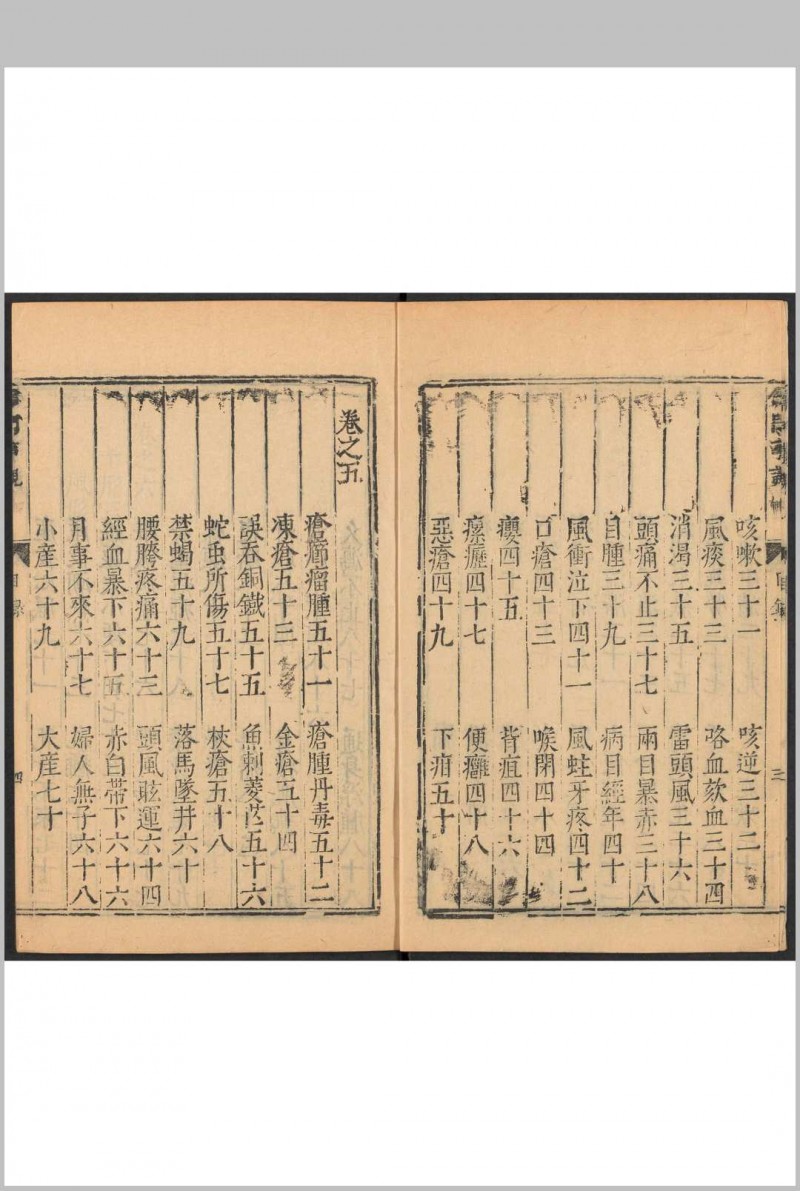 咳嗽三十一 咳逆三十二
風痰三十三 咯血欬血三十四
消渴三十五 雷頭風三十六
頭痛不止三十七 兩目暴赤三十八
目腫三十九 病目經年四十
風衝泣下四十一 風蛀牙疼四十二
口瘡四十三 喉閉四十四
癭四十五 背疽四十六
瘰癧四十七 便癰四十八
惡瘡四十九 下疳五十
目錄
三
卷之五
瘡癤瘤腫五十一 瘡腫丹毒五十二
凍瘡五十三 金瘡五十四
誤吞銅鐵五十五 魚刺麥芒五十六
蛇虫所傷五十七 杖瘡五十八
禁蝎五十九 落馬墜井六十
腰胯疼痛六十三 頭風眩運六十四
經血暴下六十五 赤白帶下六十六
月事不來六十七 婦人無子六十八
小産六十九 大産七十
目錄
四